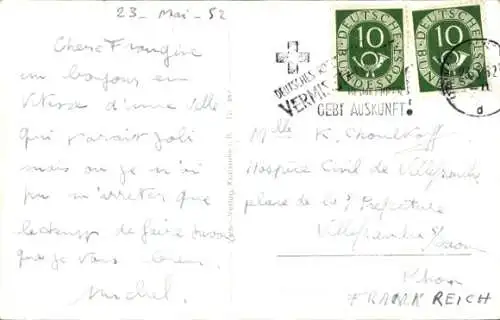 23 - Mai - 52
Chère Françoise
un bonjour en
vitesse d'une ville
qui paraît joli
mais où je n'ai
pu m'arrêter que
le temps de faire
que je vous
Michel.
DEUTSCHE BUNDESPOST
10
DEUTSCHE BUNDESPOST
10
DEUTSCHES
VERMIS
GEBT AUSKUNFT!
d
Mlle K.
Hospice Civil de Villefranche
place de la s/Préfecture
Villefranche s/Saône
Rhône
FRANKREICH